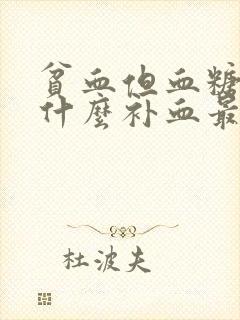 贫血但血糖
什麼补血最
杜波夫